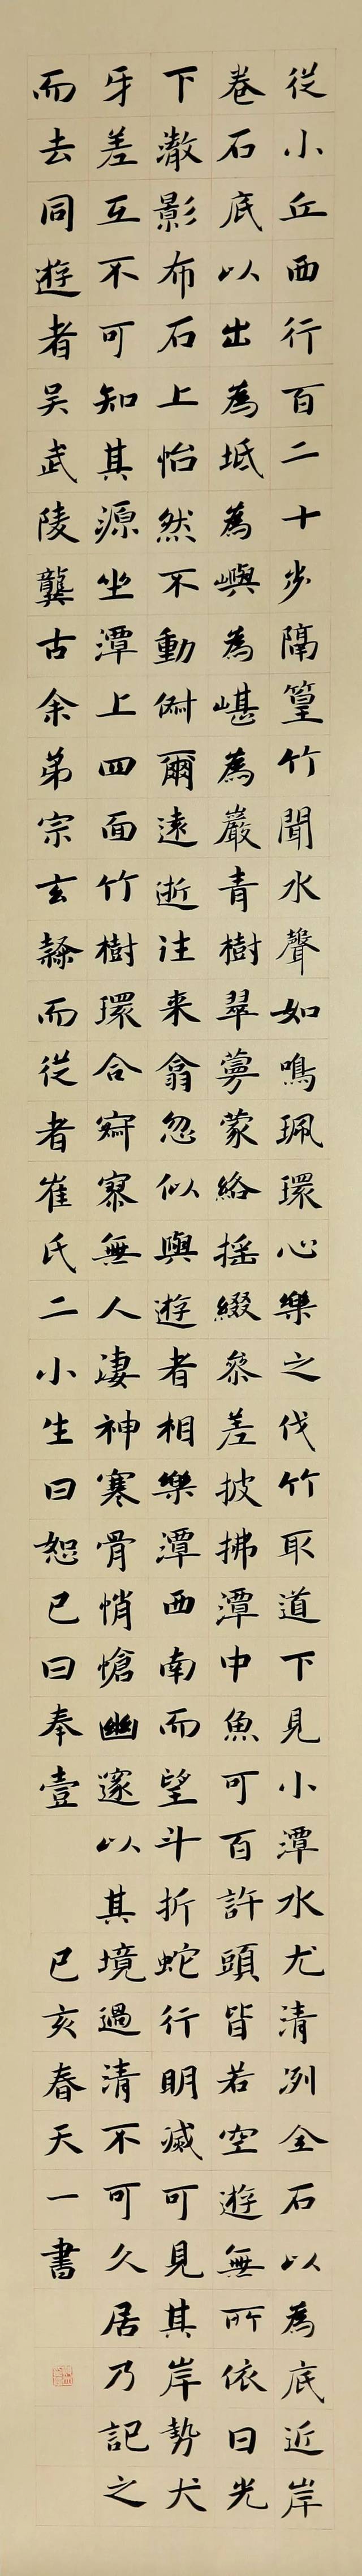 從小丘西行百二十步隔篁竹聞水聲如鳴珮環心樂之伐竹取道下見小潭水尤清冽全石以為底近岸
卷石底以出為坻為嶼為嵁為巖青樹翠蔓蒙絡搖綴參差披拂潭中魚可百許頭皆若空遊無所依日光
下澈影布石上怡然不動俶爾遠逝往来翕忽似與遊者相樂潭西南而望斗折蛇行明滅可見其岸勢犬
牙差互不可知其源坐潭上四面竹樹環合寂寥無人淒神寒骨悄愴幽邃以其境過清不可久居乃記之
而去同遊者吴武陵龔古余弟宗玄隸而從者崔氏二小生曰恕己曰奉壹
己亥春天一書